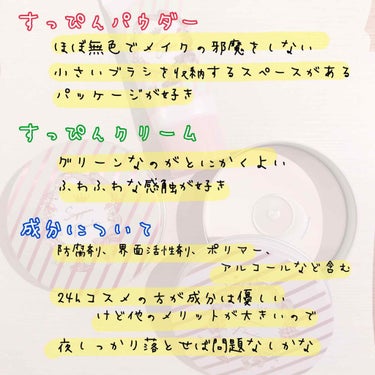 すっぴんパウダー
ほぼ無色でメイクの邪魔をしない
小さいブラシを収納するスペースがある
パッケージが好き
すっぴんクリーム
グリーンなのがとにかくよい
ふわふわな感触が好き
成分について
防腐剤、界面活性剤、ポリマー、
アルコールなど含む
24hコスメの方が成分は優しい
けど他のメリットが大きいので
夜しっかり落とせば問題なしかな